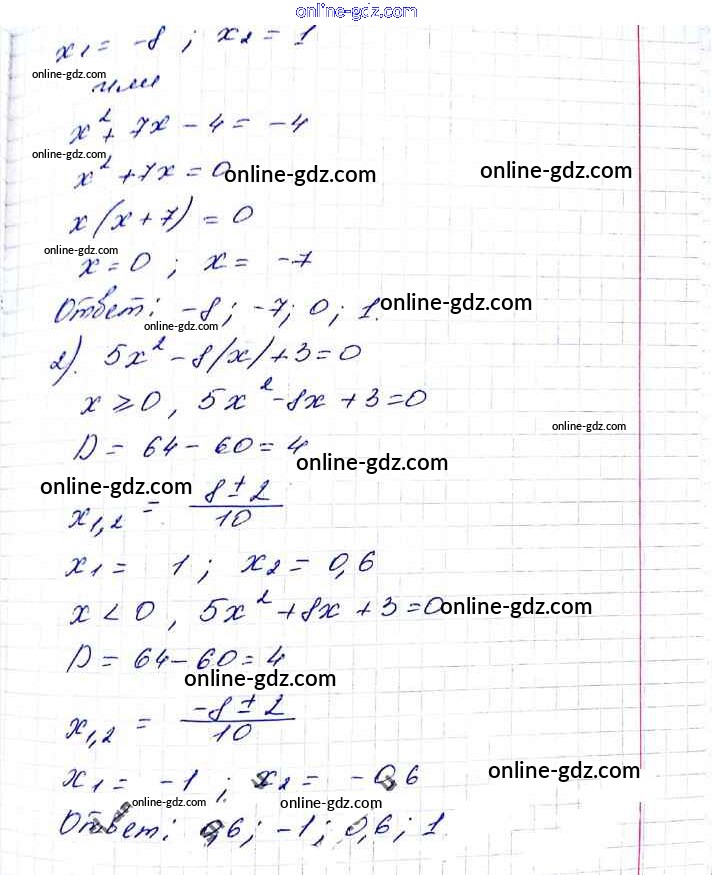 online-gdz.com
x₁ = -8 ; x₂ = 1
online-gdz.com
или
x² + 7x - 4 = -4
online-gdz.com
x² + 7x = 0 online-gdz.com online-gdz.com
x(x+7) = 0
online-gdz.com
x = 0 ; x = -7
Ответ: -8; -7; 0; 1. online-gdz.com
online-gdz.com
2). 5x² - 8|x| + 3 = 0
x ⩾ 0, 5x² - 8x + 3 = 0
online-gdz.com
D = 64 - 60 = 4
online-gdz.com
online-gdz.com
x₁,₂ = (8 ± 2)/10
x₁ = 1; x₂ = 0,6
x < 0, 5x² + 8x + 3 = 0 online-gdz.com
D = 64 - 60 = 4
online-gdz.com
x₁,₂ = (-8 ± 2)/10
x₁ = -1 ; x₂ = -0,6 online-gdz.com
online-gdz.com online-gdz.com
Ответ: 0,6; -1; 0,6; 1.